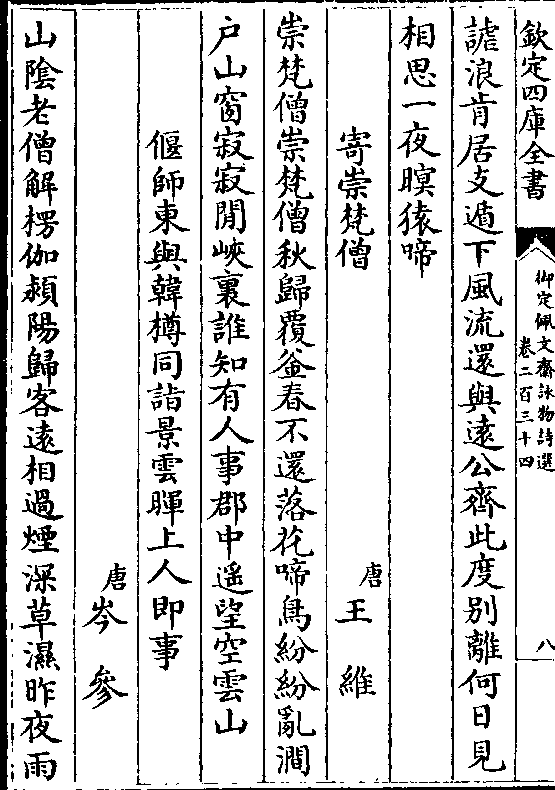 欽定四庫全書
御定佩文齋詠物詩選
卷二百三十四
八
謔浪肯居支遁下風流還與遠公齊此度别離何日見
相思一夜暝猿啼
寄崇梵僧
唐王維
崇梵僧崇梵僧秋歸覆釜春不還落花啼鳥紛紛亂澗
户山窗寂寂閒峽裏誰知有人事郡中遥望空雲山
偃師東與韓樽同詣景雲暉上人即事
唐岑參
山陰老僧解楞伽潁陽歸客逺相過煙深草濕昨夜雨